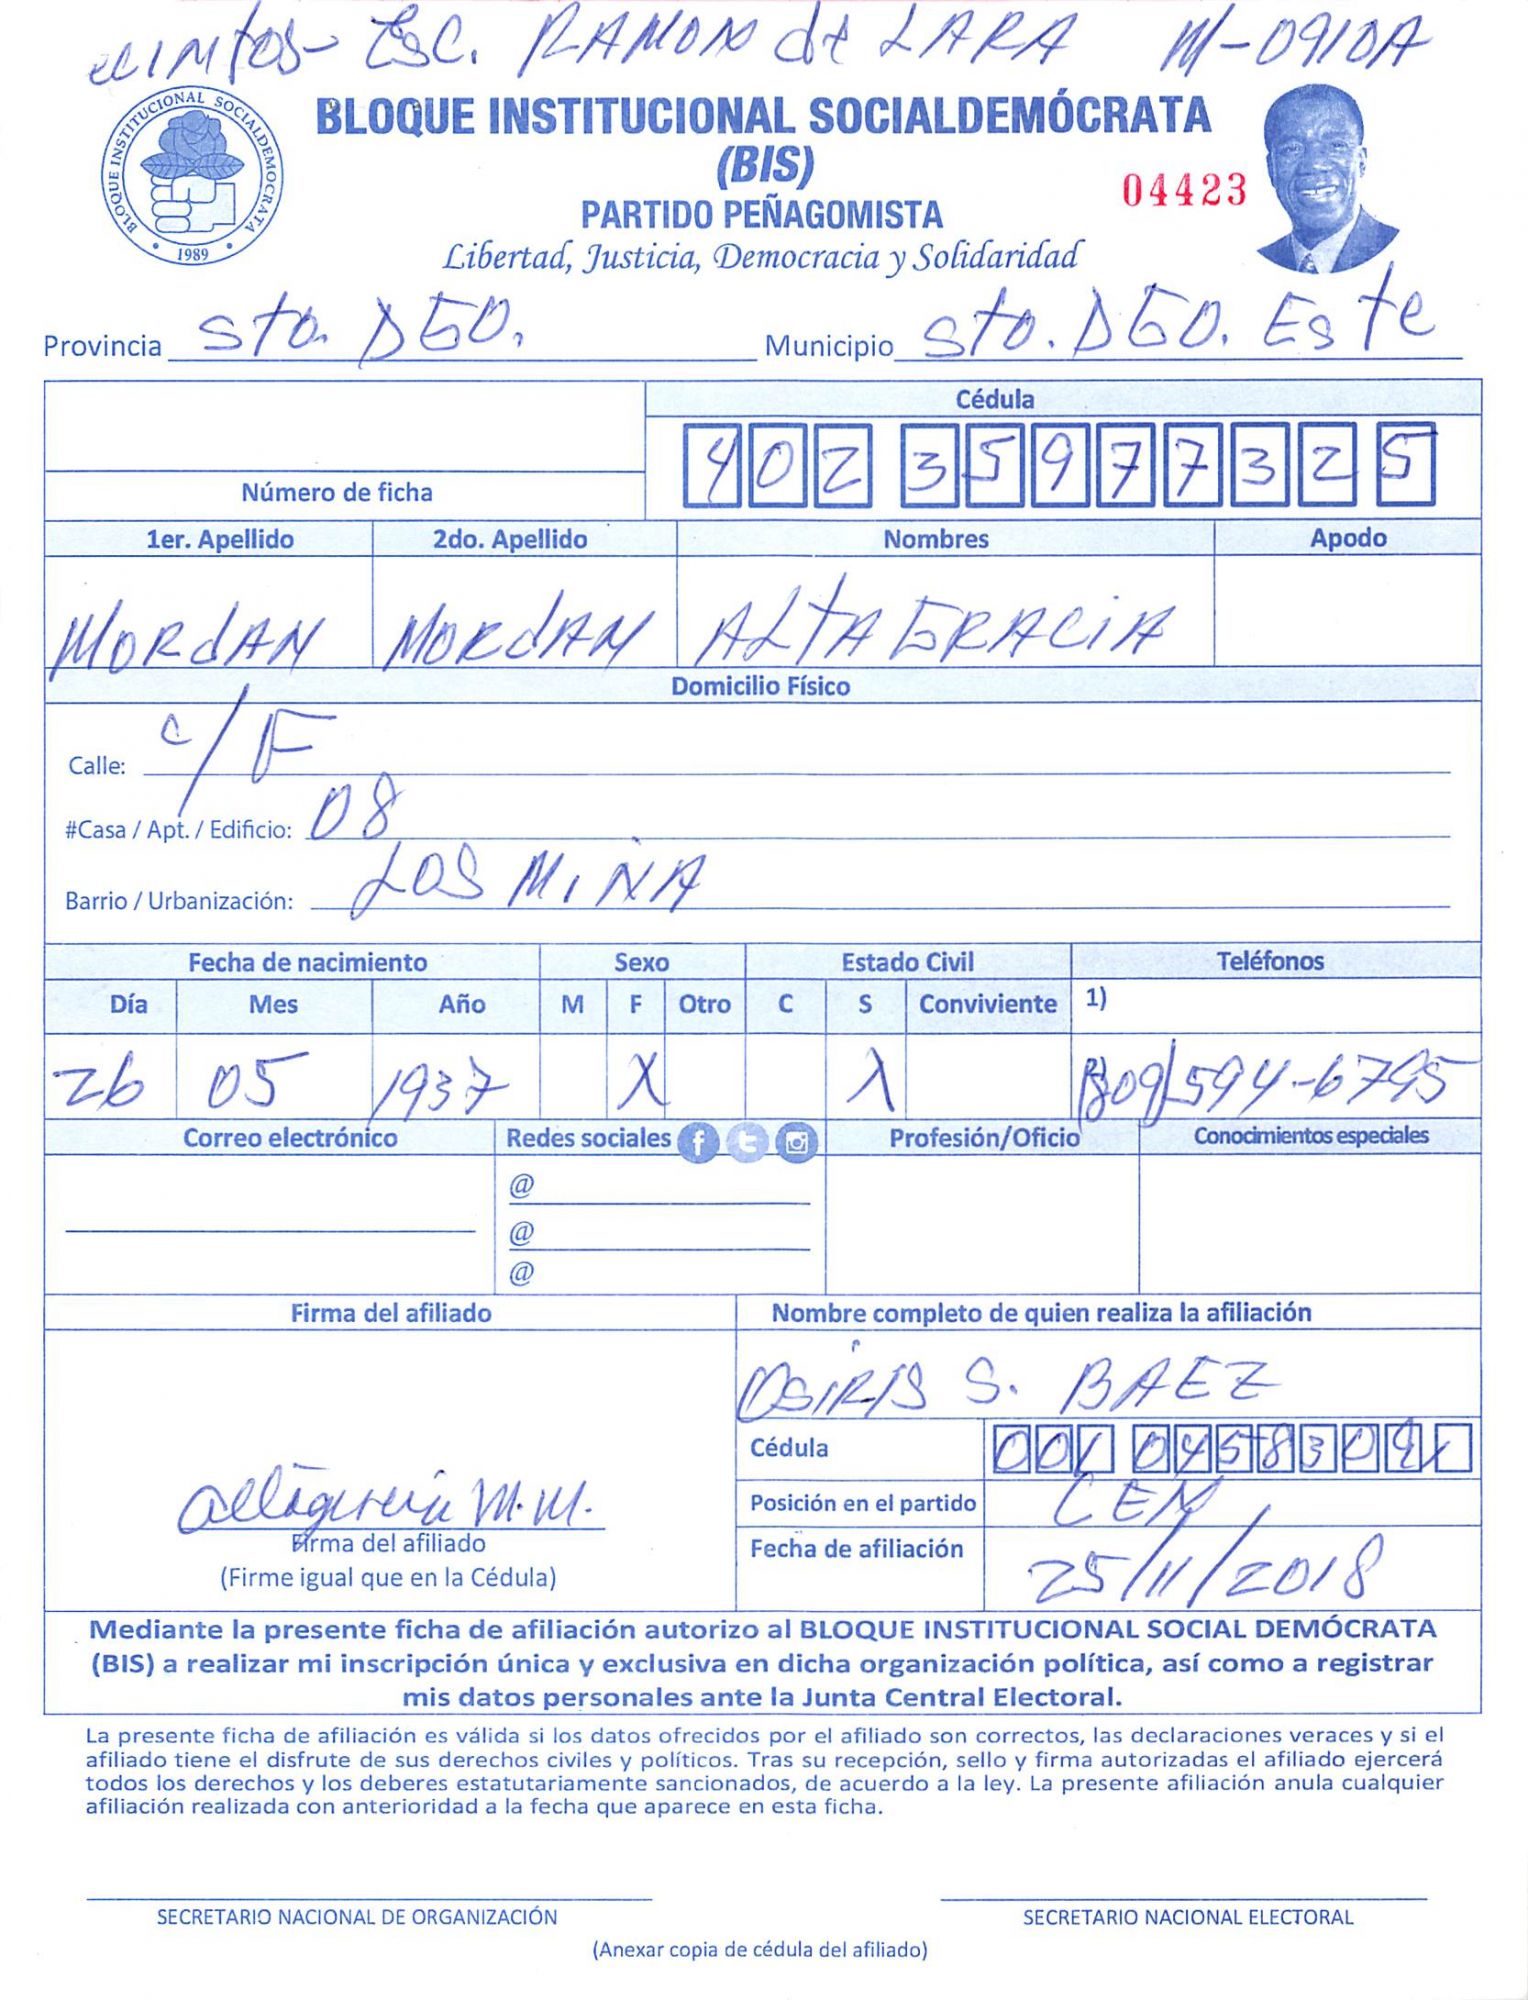 ecintos- Esc. RAMON de LARA M-0910A
BLOQUE INSTITUCIONAL SOCIALDEMOCRATA
1989
BLOQUE INSTITUCIONAL SOCIALDEMÓCRATA
(BIS)
04423
PARTIDO PEÑAGOMISTA
Libertad, Justicia, Democracia y Solidaridad
Provincia Sto. DGO. Municipio Sto. DGO. Este
Cédula
402 3597732 5
Número de ficha
1er. Apellido 2do. Apellido Nombres Apodo
MORDAN MORDAN ALTAGRACIA
Domicilio Físico
Calle: C/F
#Casa / Apt. / Edificio: 08
Barrio / Urbanización: LOS MINA
Fecha de nacimiento Sexo Estado Civil Teléfonos
Día Mes Año M F Otro C S Conviviente 1)
26 05 1937 X X (809)594-6795
Correo electrónico Redes sociales Profesión/Oficio Conocimientos especiales
@
@
@
Firma del afiliado Nombre completo de quien realiza la afiliación
OSIRIS S. BAEZ
Cédula 001 0458309 1
Altagracia M.M.
Posición en el partido CEN
Firma del afiliado
Fecha de afiliación 25/11/2018
(Firme igual que en la Cédula)
Mediante la presente ficha de afiliación autorizo al BLOQUE INSTITUCIONAL SOCIAL DEMÓCRATA
(BIS) a realizar mi inscripción única y exclusiva en dicha organización política, así como a registrar
mis datos personales ante la Junta Central Electoral.
La presente ficha de afiliación es válida si los datos ofrecidos por el afiliado son correctos, las declaraciones veraces y si el
afiliado tiene el disfrute de sus derechos civiles y políticos. Tras su recepción, sello y firma autorizadas el afiliado ejercerá
todos los derechos y los deberes estatutariamente sancionados, de acuerdo a la ley. La presente afiliación anula cualquier
afiliación realizada con anterioridad a la fecha que aparece en esta ficha.
SECRETARIO NACIONAL DE ORGANIZACIÓN SECRETARIO NACIONAL ELECTORAL
(Anexar copia de cédula del afiliado)